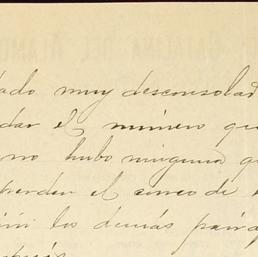 CATALINA DEL ALAMO
ado muy desconsolad
dar el número qu
no hubo ninguna q
perder el correo de
los demás para